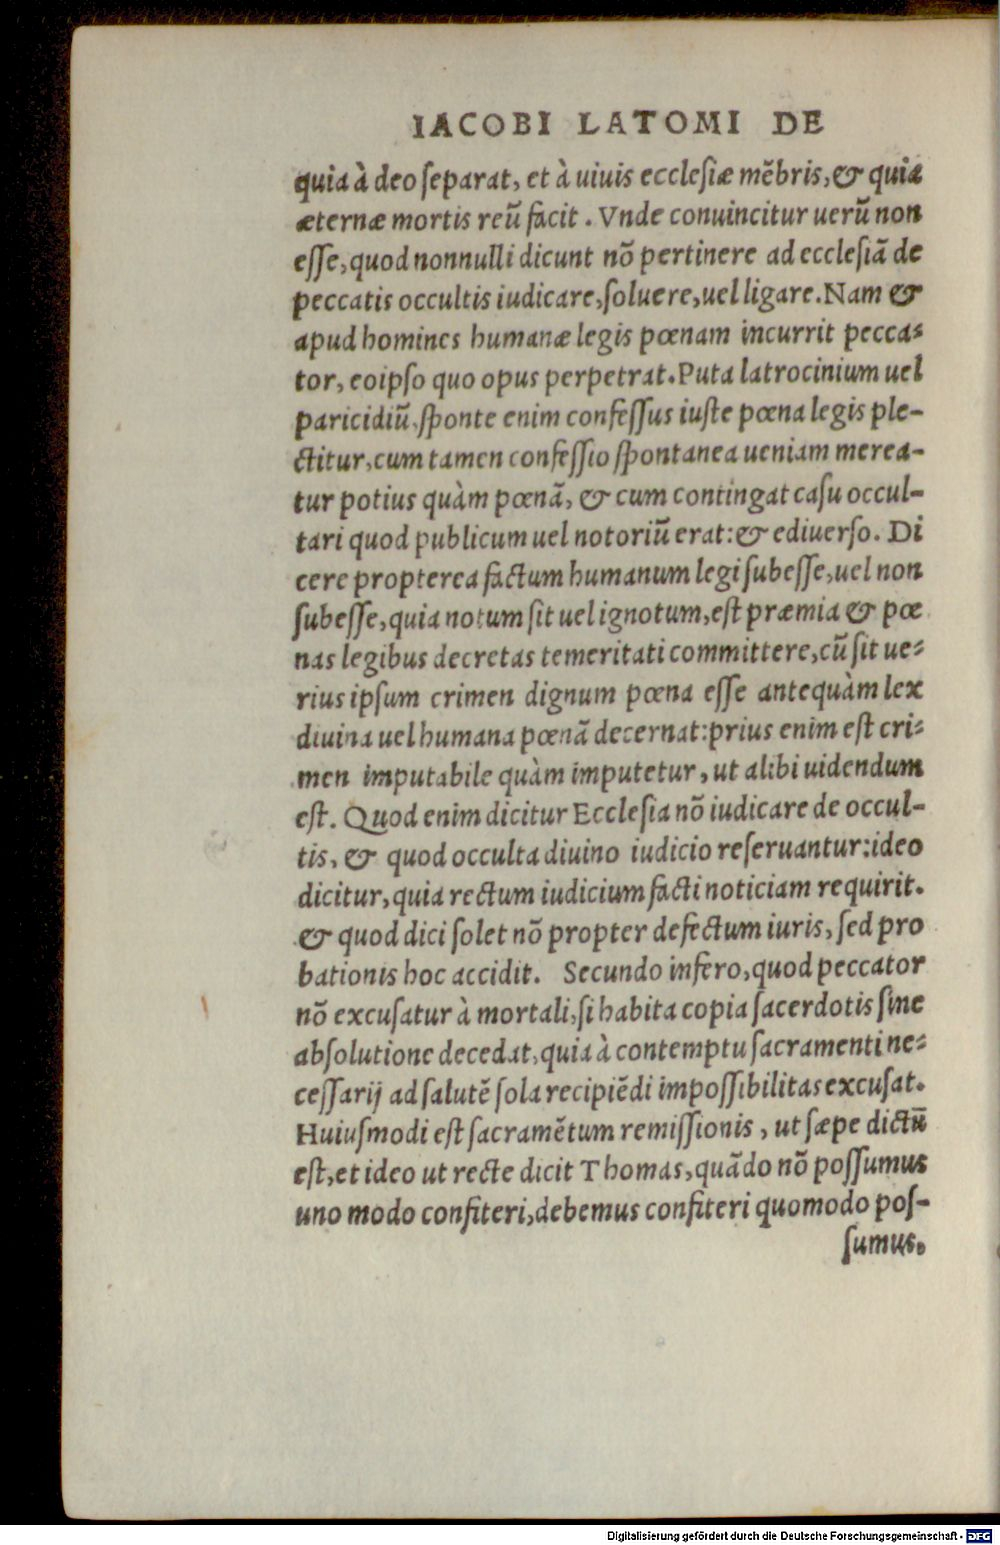 IACOBI LATOMI DE
quia à deo separat, et à uiuis ecclesiæ mẽbris, & quia
æternæ mortis reũ facit. Vnde conuincitur uerũ non
esse, quod nonnulli dicunt nõ pertinere ad ecclesiã de
peccatis occultis iudicare, soluere, uel ligare. Nam &
apud homines humanæ legis pœnam incurrit pecca-
tor, eoipso quo opus perpetrat. Puta latrocinium uel
paricidiũ, sponte enim confessus iuste pœna legis ple-
ctitur, cum tamen confessio spontanea ueniam merea-
tur potius quàm pœnã, & cum contingat casu occul-
tari quod publicum uel notoriũ erat: & ediuerso. Di
cere propterea factum humanum legi subesse, uel non
subesse, quia notum sit uel ignotum, est præmia & pœ
nas legibus decretas temeritati committere, cũ sit ue-
rius ipsum crimen dignum pœna esse antequàm lex
diuina uel humana pœnã decernat: prius enim est cri-
men imputabile quàm imputetur, ut alibi uidendum
est. Quod enim dicitur Ecclesia nõ iudicare de occul-
tis, & quod occulta diuino iudicio reseruantur: ideo
dicitur, quia rectum iudicium facti noticiam requirit.
& quod dici solet nõ propter defectum iuris, sed pro
bationis hoc accidit. Secundo infero, quod peccator
nõ excusatur à mortali, si habita copia sacerdotis sine
absolutione decedat, quia à contemptu sacramenti ne-
cessarij ad salutẽ sola recipiẽdi impossibilitas excusat.
Huiusmodi est sacramẽtum remissionis, ut sæpe dictũ
est, et ideo ut recte dicit Thomas, quãdo nõ possumus
uno modo confiteri, debemus confiteri quomodo pos-
sumus.
Digitalisierung gefördert durch die Deutsche Forschungsgemeinschaft - DFG